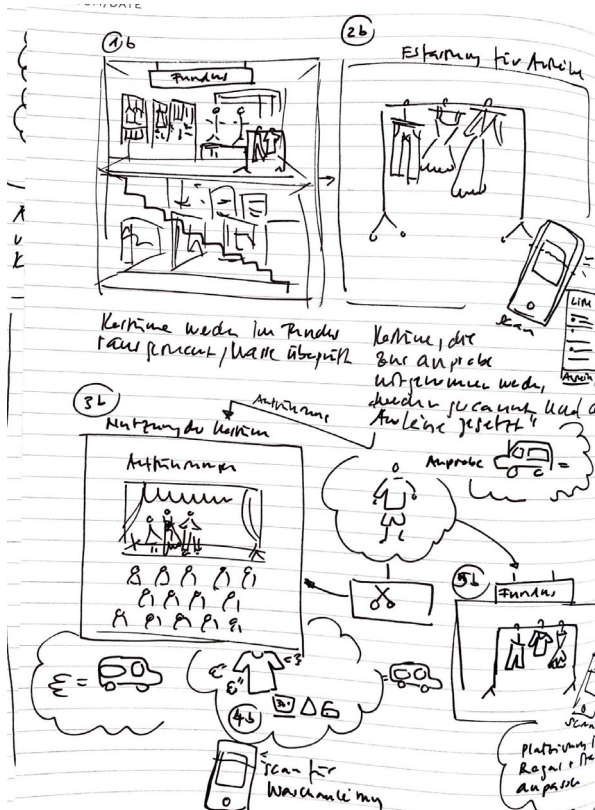 OM/DATE
1b
Fundus
2b
Erfassung für Ausleihe
Scan
Liste
Kostüme werden im Fundus
rausgesucht / Masse überprüft
Kostüme, die
zur Anprobe
mitgenommen werden,
werden gescannt und
Ausleihe gesetzt"
3b
Nutzung der Kostüme
Aufführung
Anprobe
Aufführungen
5b
Fundus
4b
30°
Scan für
Waschanleitung
Scan
Platzierung
Regal +
anpassen